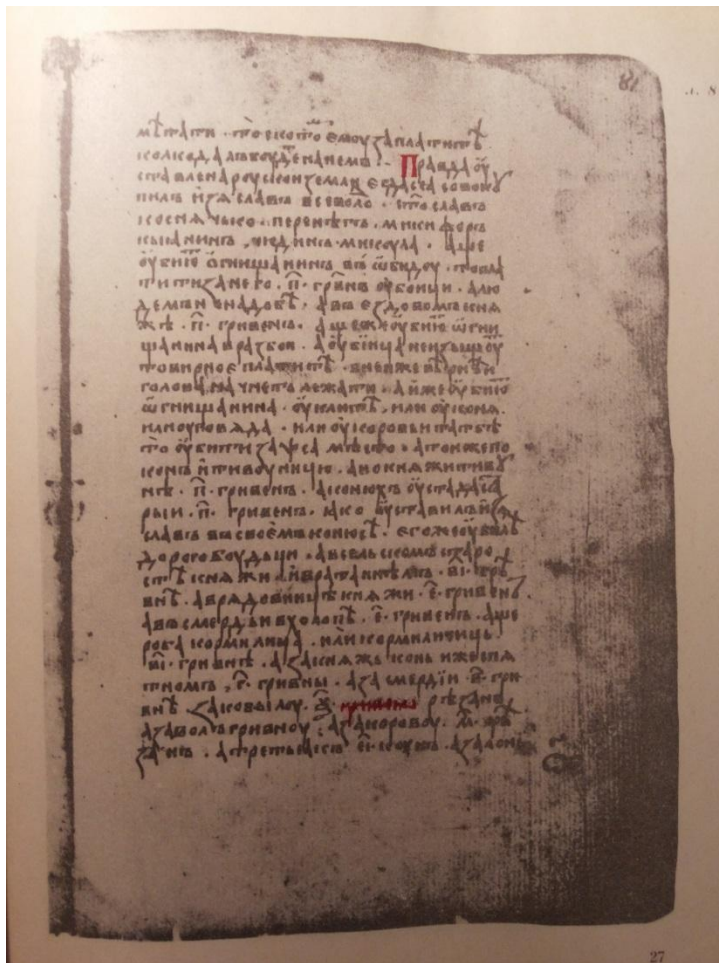 мѣтати · то ското емоу заплатитъ
колкодалъбоуденанемъ · Правдаоу
ставленароускоиземли егдасѧсовокоу
пилъ изѧславъ всеволо · стославъ
коснѧчько · перенѣгъ · микифоръ
кыанинъ , чюдинъ · микоула · аще
оубию огнищанинъ въ ѡбидоу · топла
титизанего · п҃ · гривнъ оубоици · алю
демъ ненадобѣ · авъ ездовомъ кнѧ
жѣ · п҃ · гривенъ · ащежеоубию ѡгни
щанинавразбои · аоубiица неищющоу
товирноеплатитъ · вней жевѣрнѣи
головначнетъ лежати · аижеоубию
ѡгнищанина · оуклитъ · или оуконѧ ·
илиоуговѧда · или оукоровьитатьбѣ
то оубитизапсамѣсто · атоижепо
конъ и тивоуницю · анокнѧжитивоу
нѣ · п҃ · гривенъ · аконюхъ оустадаста
рыи · п҃ · гривенъ · ѩко оуставилъизѧ
славъ въсвоемъконюсѣ · егожеоубилѣ
дорогобоудьци · авсельскомъстаро
стѣ кнѧжи ивратаинѣмъ · в҃і · гри
внѣ · аврѧдовницѣкнѧжи · е҃ · гривенъ ·
авъсмердьивхолопѣ · е҃ · гривенъ · аще
роба кормилица · или кормилитиць
в҃і · гривнѣ · азакнѧжь конь ижеспѧ
тномъ , г҃ · гривны · азасмердiи · в҃ · гри
внѣ закобылоу · ѯ҃ · гривенъ рѣзанъ
азаволъгривноу , азакоровоу · м҃ · рѣ
занъ · атретьѧкъ · е҃і · коунъ · азалонь
81
27